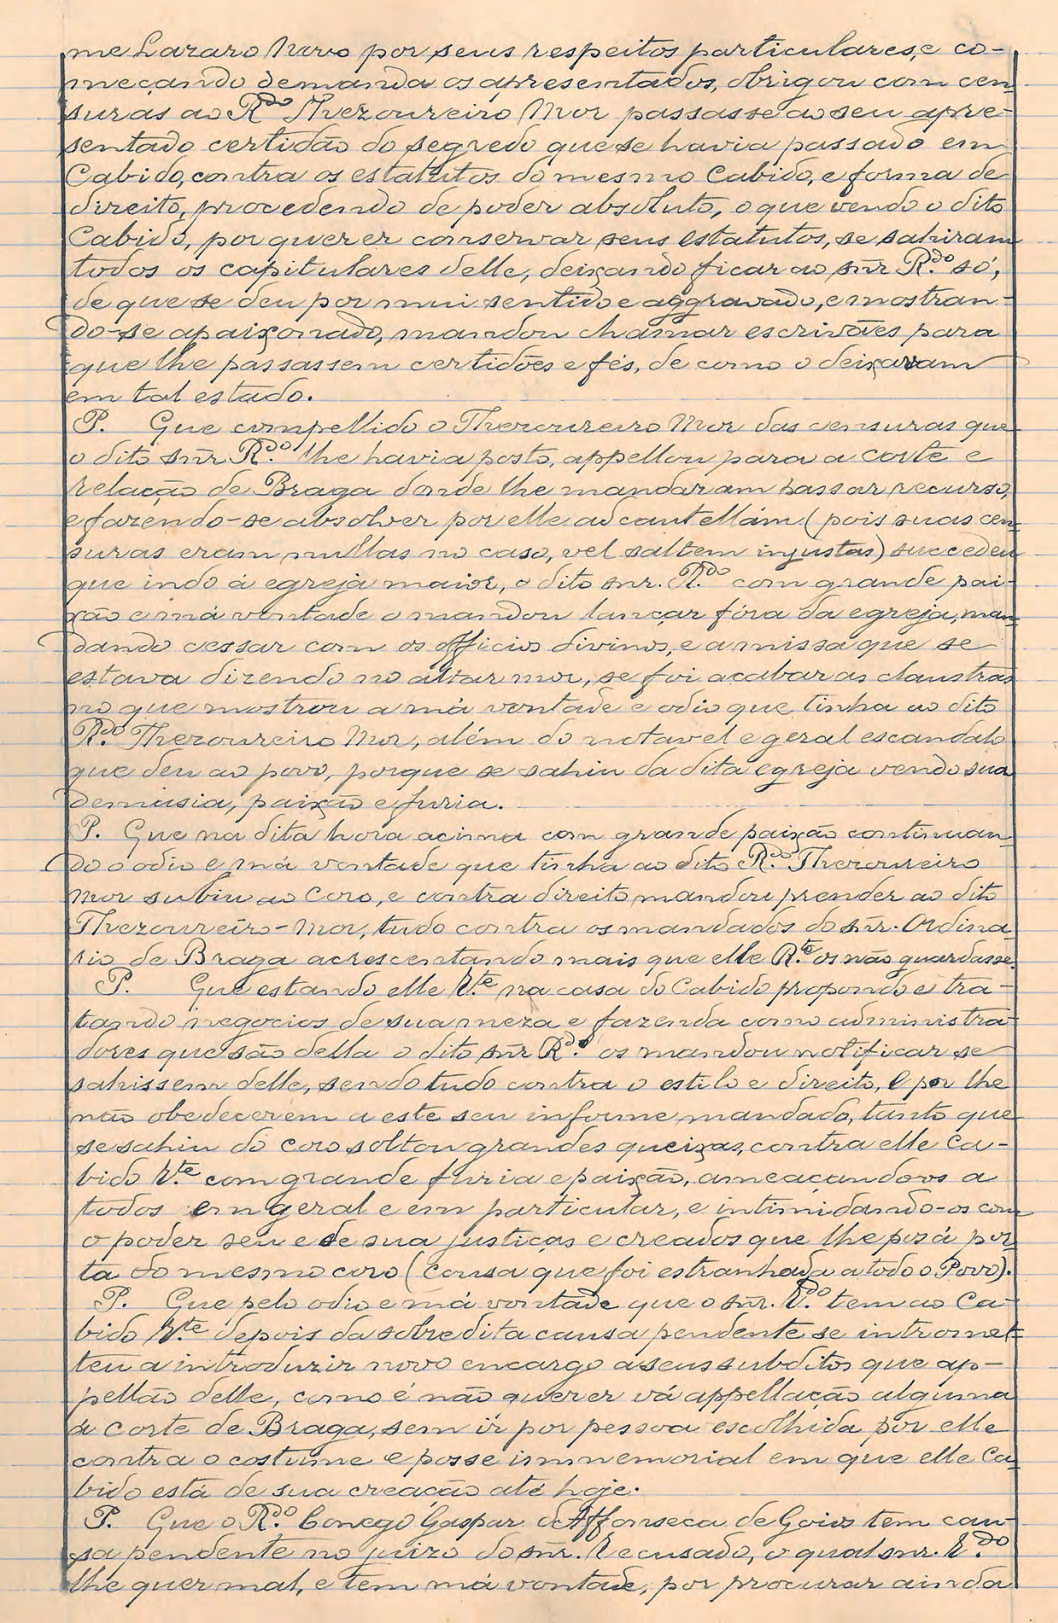 me Lazaro Novo por seus respeitos particulares, e co-
meçando demanda os apresentados, obrigou com cen
suras ao R.do Thezoureiro Mor passasse ao seu apre-
sentado certidão do segredo que se havia passado em
Cabido, contra os estatutos do mesmo Cabido, e forma de
direito, procedendo de poder absoluto, o que vendo o dito
Cabido, por querer conservar seus estatutos, se sahiram
todos os capitulares delle, deixando ficar ao snr R.do só,
de que se deu por mui sentido e aggravado, e mostran-
do-se apaixonado, mandou chamar escrivães para
que lhe passassem certidões e fés, de como o deixavam
em tal estado.
P. Que compellido o Thezoureiro Mor das censuras que
o dito snr R.do lhe havia posto, appellou para a corte e
relação de Braga donde lhe mandaram passar recurso,
e fazendo-se absolver por elle ad cautellam (pois suas cen
suras eram nullas no caso, vel saltem injustas) succedeu
que indo á egreja maior, o dito snr. R.do com grande pai-
xão e má vontade o mandou lançar fóra da egreja, man
dando cessar com os officios divinos, e a missa que se
estava dizendo no altar mor, se foi acabar as claustras
no que mostrou a má vontade e odio que tinha ao dito
R.do Thezoureiro Mor, além do notavel e geral escandalo
que deu ao povo, porque se sahiu da dita egreja vendo sua
demasia, paixão e furia.
P. Que na dita hora acima com grande paixão continuan
do o odio e má vontade que tinha ao dito R.do Thezoureiro
Mor subiu ao Coro, e contra direito mandou prender ao dito
Thezoureiro-Mor, tudo contra os mandados do snr. Ordina
rio de Braga acrescentando mais que elle R.te os não guardasse.
P. Que estando elle R.te na casa do Cabido propondo e tra-
tando negocios de sua meza e fazenda como administra-
dores que são della o dito snr R.do os mandou notificar se
sahissem delle, sendo tudo contra o estilo e direito, e por lhe
não obedecerem a este seu informe mandado, tanto que
se sahiu do coro soltou grandes queixas, contra elle Ca-
bido R.te com grande furia e paixão, ameaçandoos a
todos em geral e em particular, e intimidando-os com
o poder seu e de sua justiças e creados que lhe poz á por
ta do mesmo coro (cousa que foi estranhada a todo o Povo).
P. Que pelo odio e má vontade que o snr. R.do tem ao Ca-
bido R.te depois da sobredita causa pendente se intromet
teu a introduzir novo encargo a seus subditos que ap-
pellão delle, como é não querer vá appellação alguma
á corte de Braga, sem ir por pessoa escolhida por elle
contra o costume e posse immemorial em que elle Ca
bido está de sua creacão até hoje.
P. Que o R.do Conego Gaspar d'Affonseca de Goios tem cau-
sa pendente no juizo do snr. Recusado, o qual snr. R.do
lhe quer mal, e tem má vontade, por procurar ainda